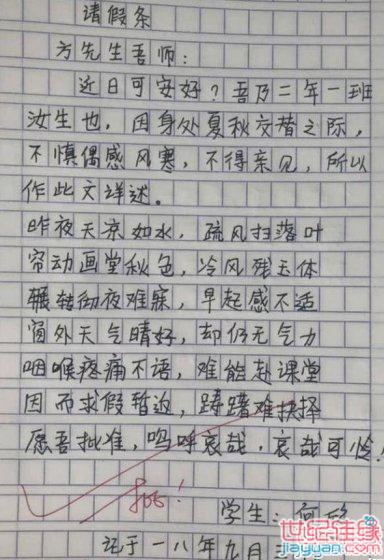 请假条
方先生吾师：
近日可安好？吾乃二年一班
汝生也，因身处夏秋交替之际，
不慎偶感风寒，不得亲见，所以
作此文详述。
昨夜天凉如水，疏风扫落叶
帘动画堂秋色，冷风残玉体
辗转彻夜难寐，早起感不适
窗外天气晴好，却仍无气力
咽喉疼痛不语，难能赴课堂
因而求假暂返，踌躇难抉择
愿吾批准，呜呼哀哉，哀哉可怜！
批！
学生：何
世纪佳缘
jiayuan.com
记于一八年九月三